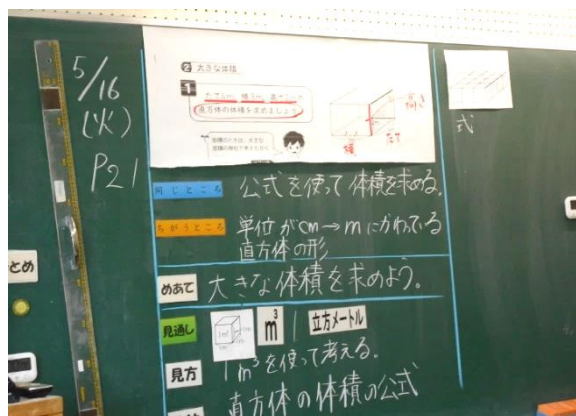 5/16
(火)
P21
2 大きな体積
1
直方体の体積を求めましょう。
高さ
横
たて
式
同じところ
公式を使って体積を求める。
ちがうところ
単位がcm→mにかわっている
直方体の形
とめ
めあて
大きな体積を求めよう。
見通し
1m³
m³
立方メートル
見方
1m³を使って考える。
直方体の体積の公式